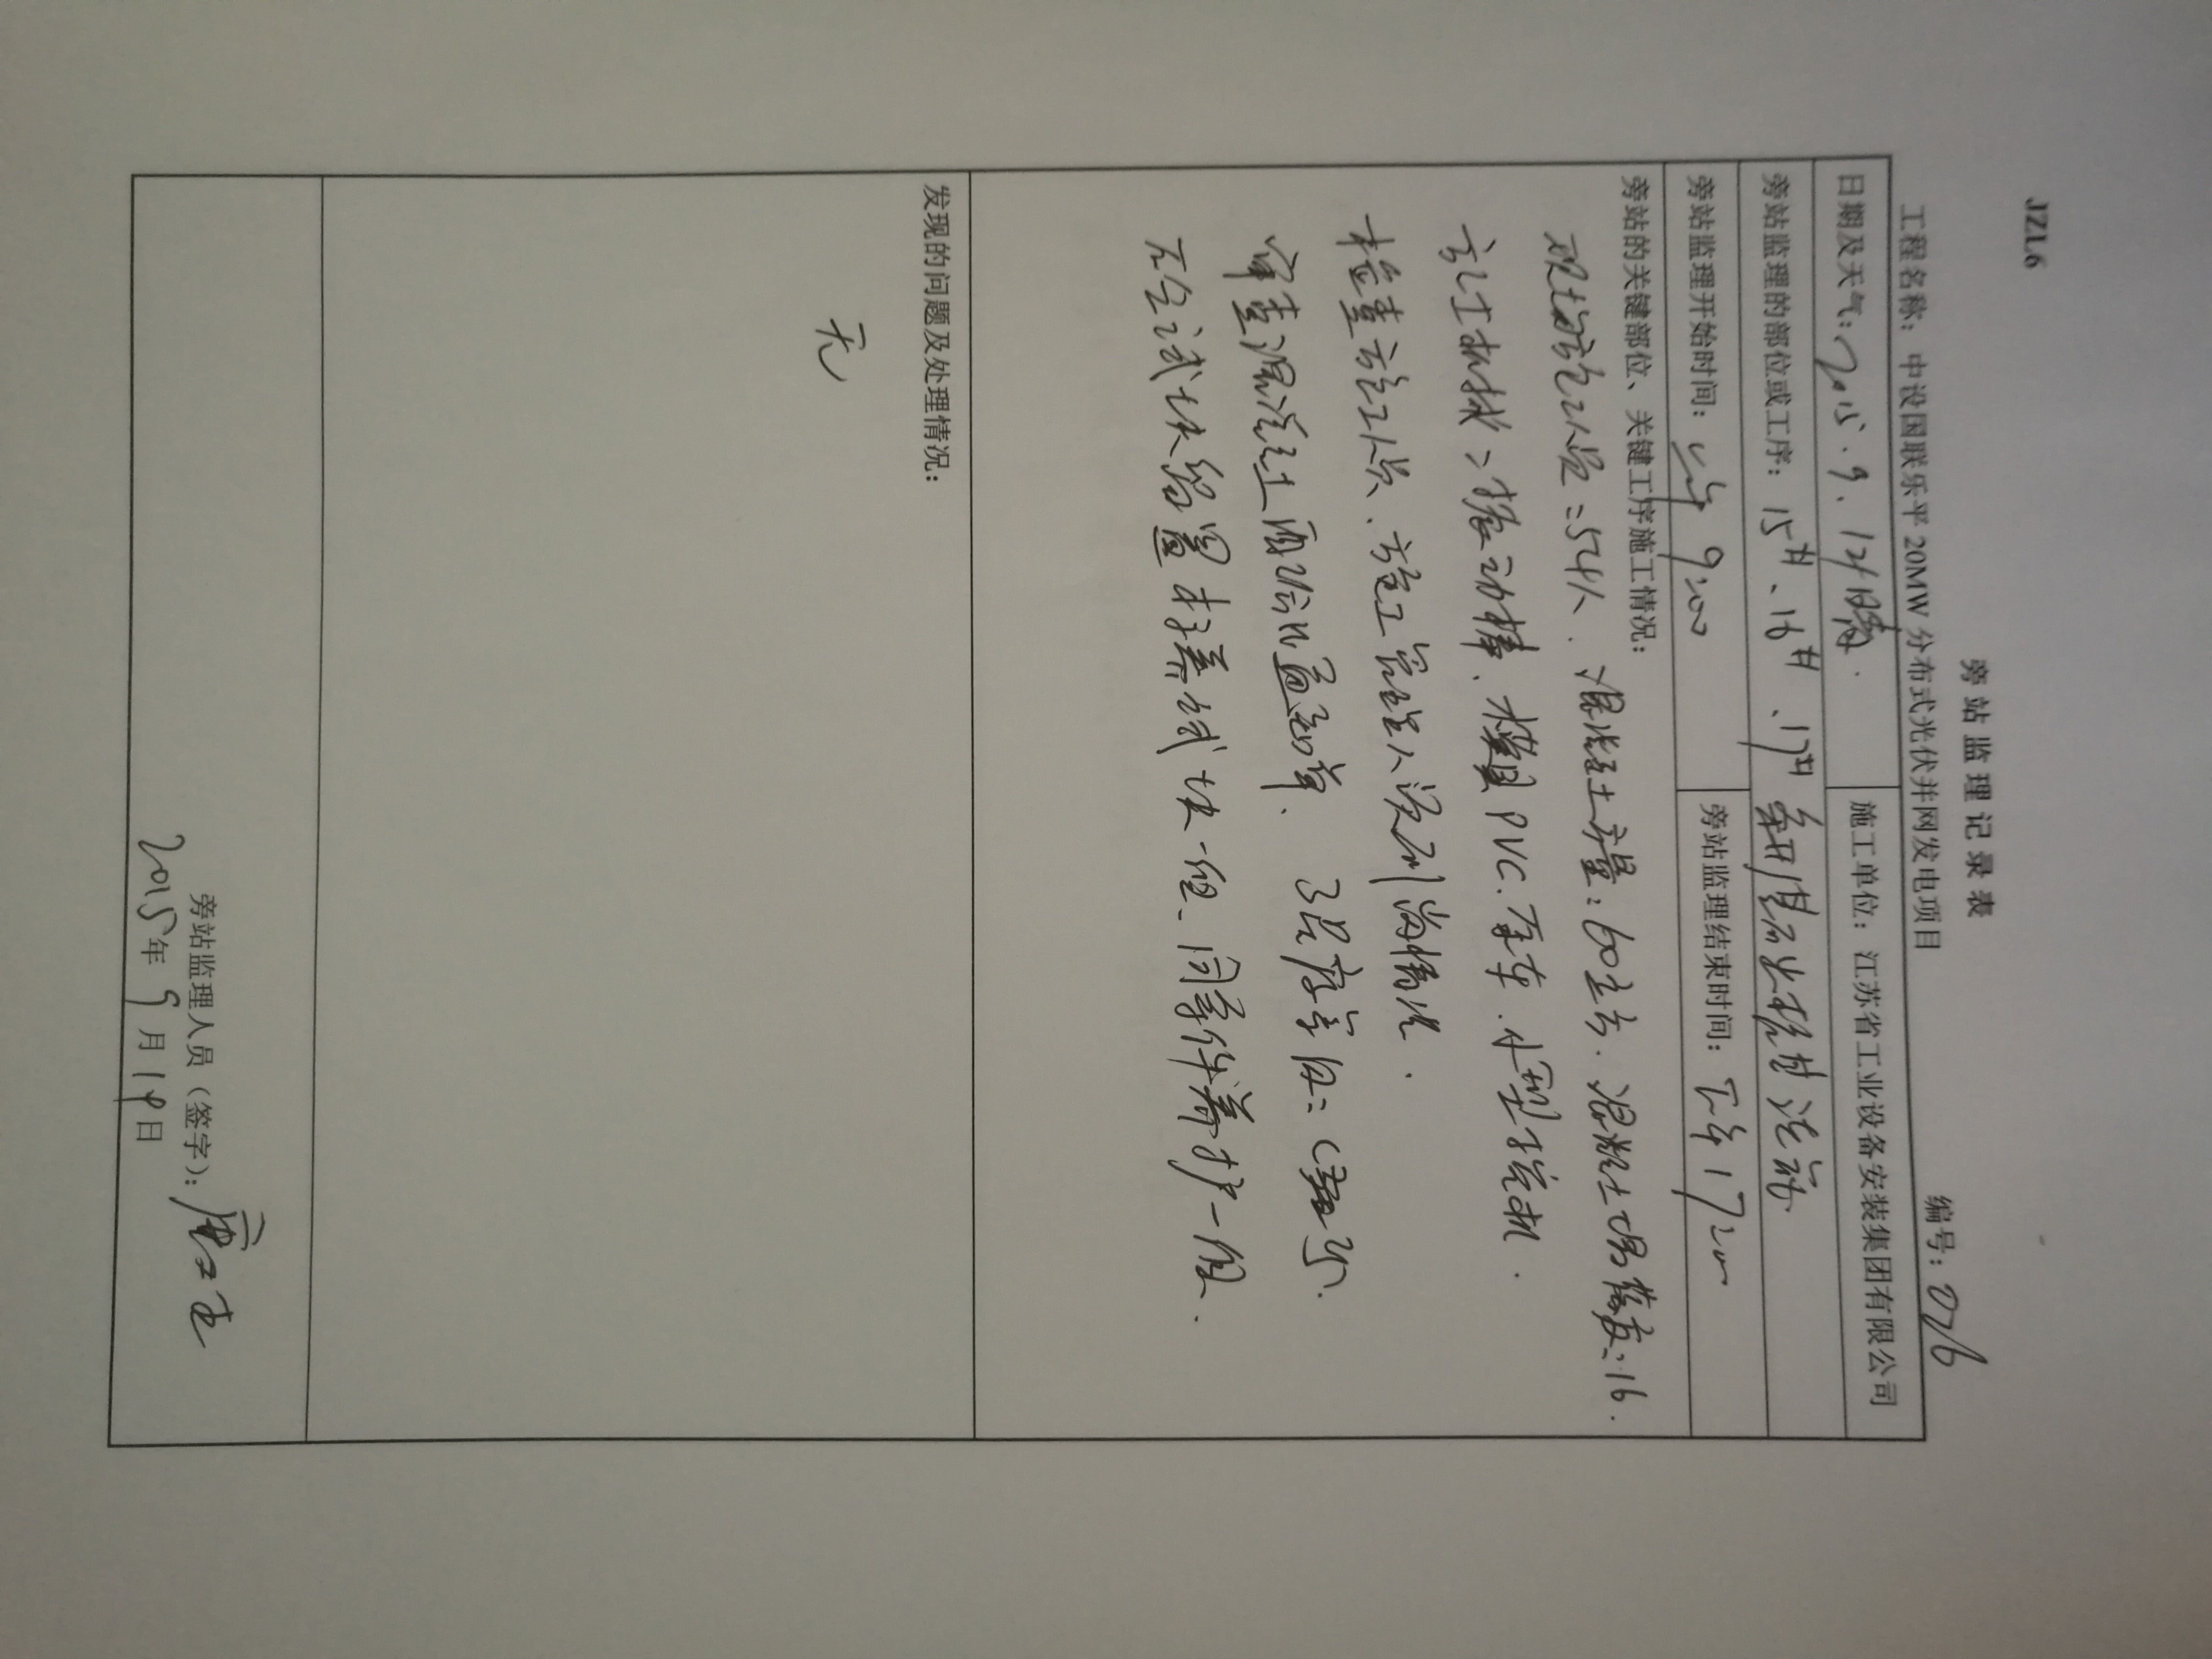 JZL6
旁站监理记录表
工程名称：中设国联乐平20MW分布式光伏并网发电项目 编号：076
日期及天气：2015.9.12/晴. 施工单位：江苏省工业设备安装集团有限公司
旁站监理的部位或工序：15#、16#、17# 组件基础
旁站监理开始时间：上午9:00 旁站监理结束时间：下午17:00
旁站的关键部位、关键工序施工情况：
现场施工人员：54人. 混凝土方量：60立方. 混凝土塌落度：16.
施工机械：振动棒、模具PVC、泵车、小型挖机.
检查施工人员、施工管理人员到岗情况.
审查混凝土配合比通知单、强度等级：C25.
见证试块留置标养试块一组、同条件养护一组.
发现的问题及处理情况：
无
旁站监理人员（签字）：
2015年9月19日